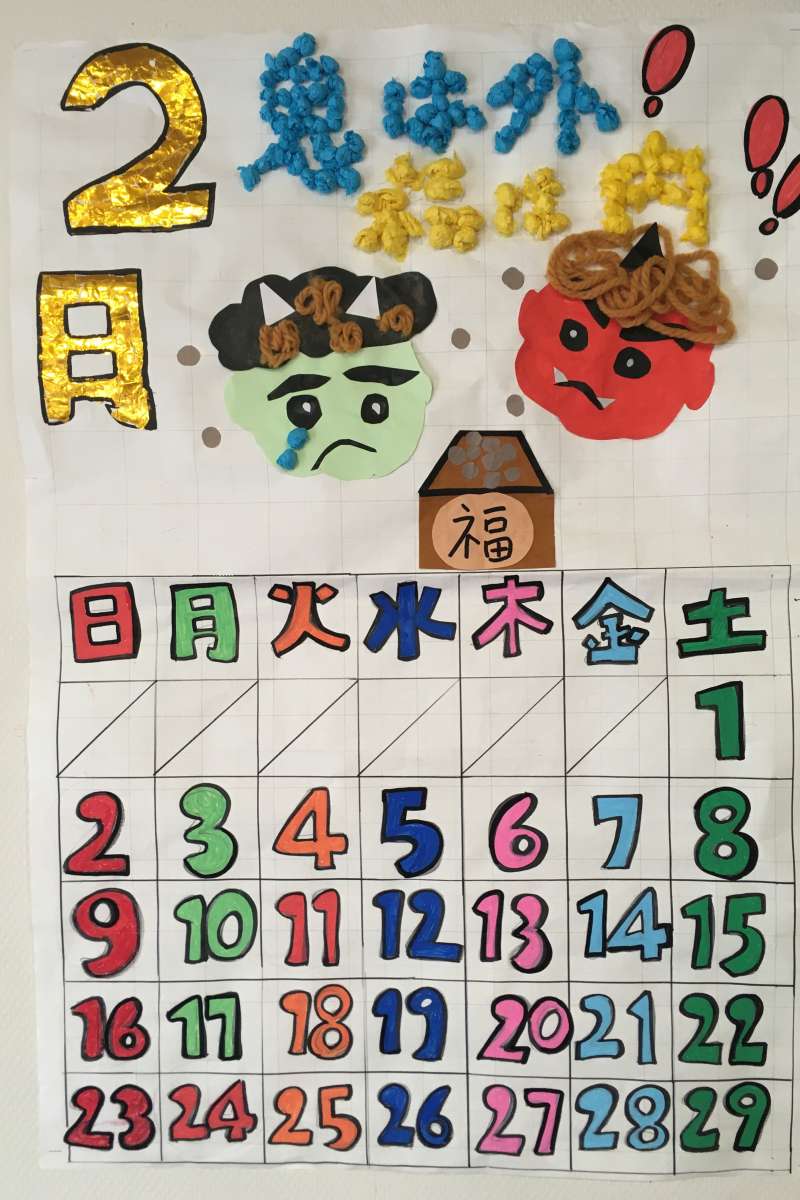 2月
鬼は外!
福は内!!
福
日 月 火 水 木 金 土
1
2 3 4 5 6 7 8
9 10 11 12 13 14 15
16 17 18 19 20 21 22
23 24 25 26 27 28 29